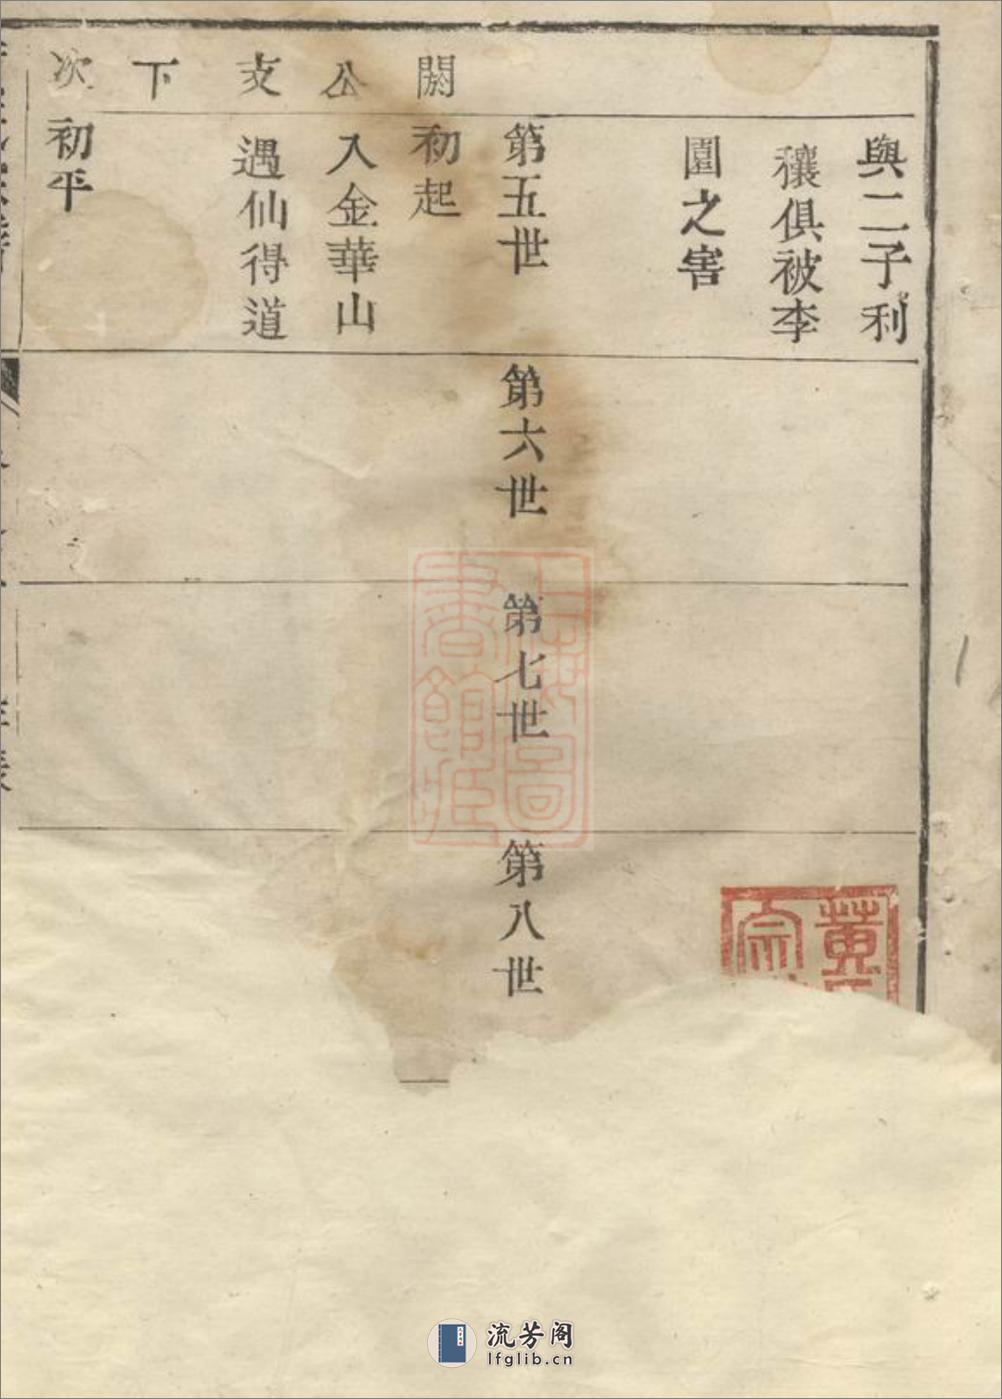 與二子利
穰俱被李
園之害
第五世
第六世
第七世
第八世
閼
初起
公
入金華山
支
遇仙得道
下
次
初平
上海圖
書館藏
黄
宗
流芳阁
lfglib.cn